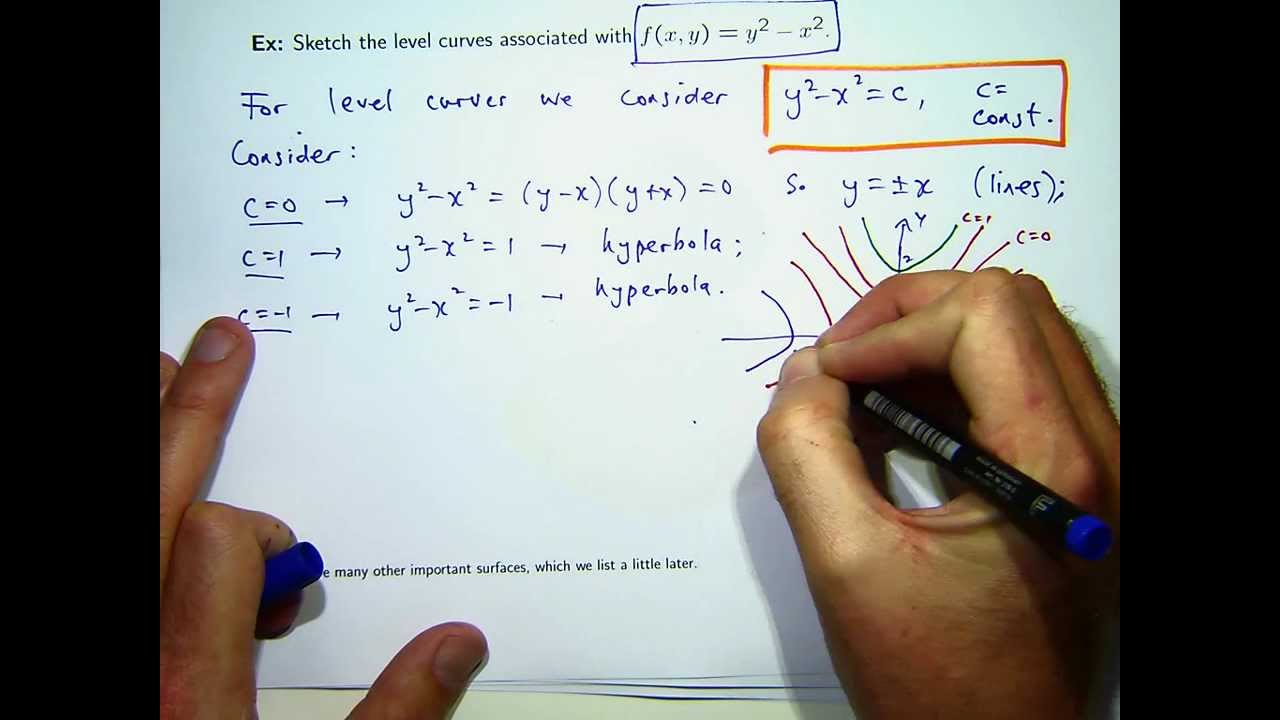 Ex: Sketch the level curves associated with f(x, y) = y² − x².
For level curves we consider y²-x²=c, c= const.
Consider:
c=0 → y²-x² = (y-x)(y+x) = 0 So y=±x (lines);
c=1 → y²-x² = 1 → hyperbola;
c=-1 → y²-x² = -1 → hyperbola.
y
c=1
c=0
2
e many other important surfaces, which we list a little later.